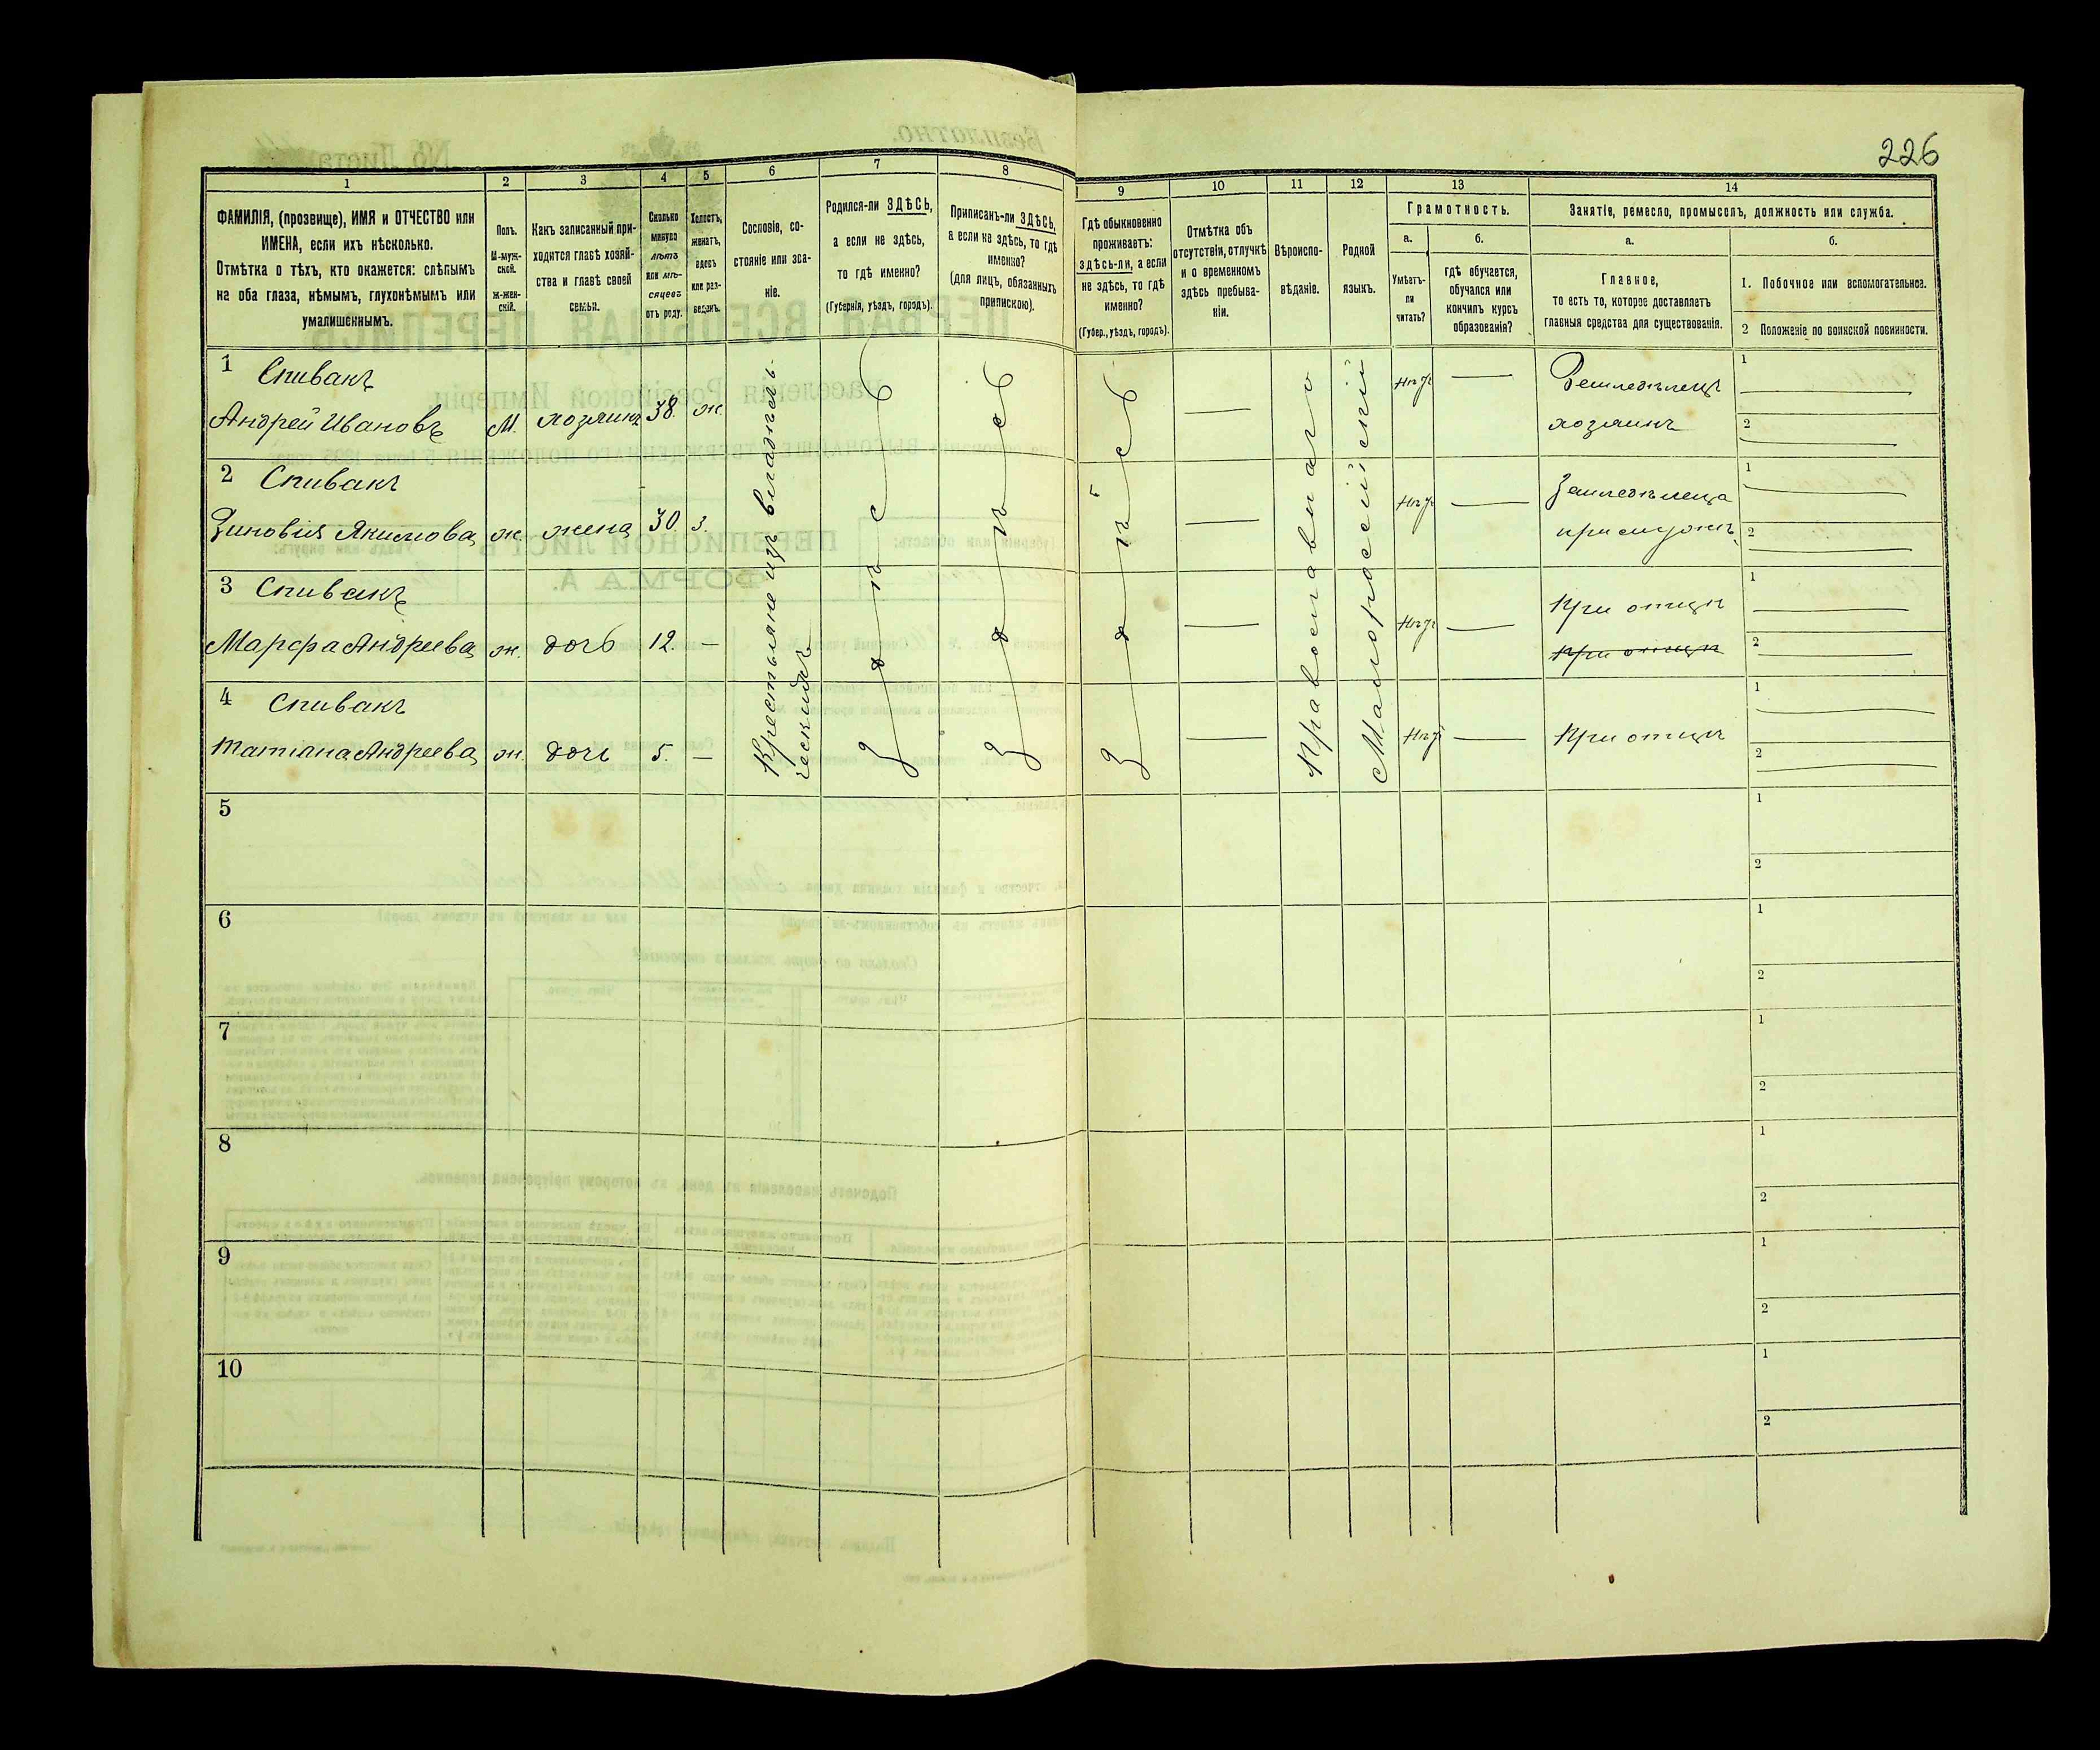 226
1
2
3
4
5
6
7
8
9
10
11
12
13
14
ФАМИЛІЯ, (прозвище), ИМЯ и ОТЧЕСТВО или
ИМЕНА, если ихъ нѣсколько.
Отмѣтка о тѣхъ, кто окажется: слѣпымъ
на оба глаза, нѣмымъ, глухонѣмымъ или
умалишеннымъ.
Полъ.
М-муж-
ской.
ж-жен-
скій.
Какъ записанный при-
ходится главѣ хозяй-
ства и главѣ своей
семьи.
Сколько
минуло
лѣтъ
или мѣ-
сяцевъ
отъ роду.
Холостъ,
женатъ,
вдовъ
или раз-
веденъ.
Сословіе, со-
стояніе или зва-
ніе.
Родился-ли ЗДѢСЬ,
а если не здѣсь,
то гдѣ именно?
(Губернія, уѣздъ, городъ).
Приписанъ-ли ЗДѢСЬ,
а если не здѣсь, то гдѣ
именно?
(для лицъ, обязанныхъ
припискою).
Гдѣ обыкновенно
проживаетъ:
здѣсь-ли, а если
не здѣсь, то гдѣ
именно?
(Губер., уѣздъ, городъ).
Отмѣтка объ
отсутствіи, отлучкѣ
и о временномъ
здѣсь пребыва-
ніи.
Вѣроиспо-
вѣданіе.
Родной
языкъ.
Грамотность.
а.
Умѣетъ-
ли
читать?
б.
гдѣ обучается,
обучался или
кончилъ курсъ
образованія?
Занятіе, ремесло, промыселъ, должность или служба.
а.
Главное,
то есть то, которое доставляетъ
главныя средства для существованія.
б.
1. Побочное или вспомогательное.
2 Положеніе по воинской повинности.
1 Спивакъ
Андрей Ивановъ М. хозяинъ 38. ж. нѣтъ — Земледѣлецъ
хозяинъ
1
2
2 Спивакъ
Зиновія Якимова ж. жена 30. з. нѣтъ — Земледѣлеца
при мужѣ
1
2
3 Спивакъ
Марфа Андреева ж. дочь 12. — нѣтъ — При отцѣ
при отцѣ
1
2
4 Спивакъ
Татіана Андреева ж. дочь 5. — нѣтъ — При отцѣ
1
2
Крестьяне изъ владѣль-
ческихъ
здѣсь
здѣсь
здѣсь
Православнаго
Малороссійскій
5
1
2
6
1
2
7
1
2
8
1
2
9
1
2
10
1
2